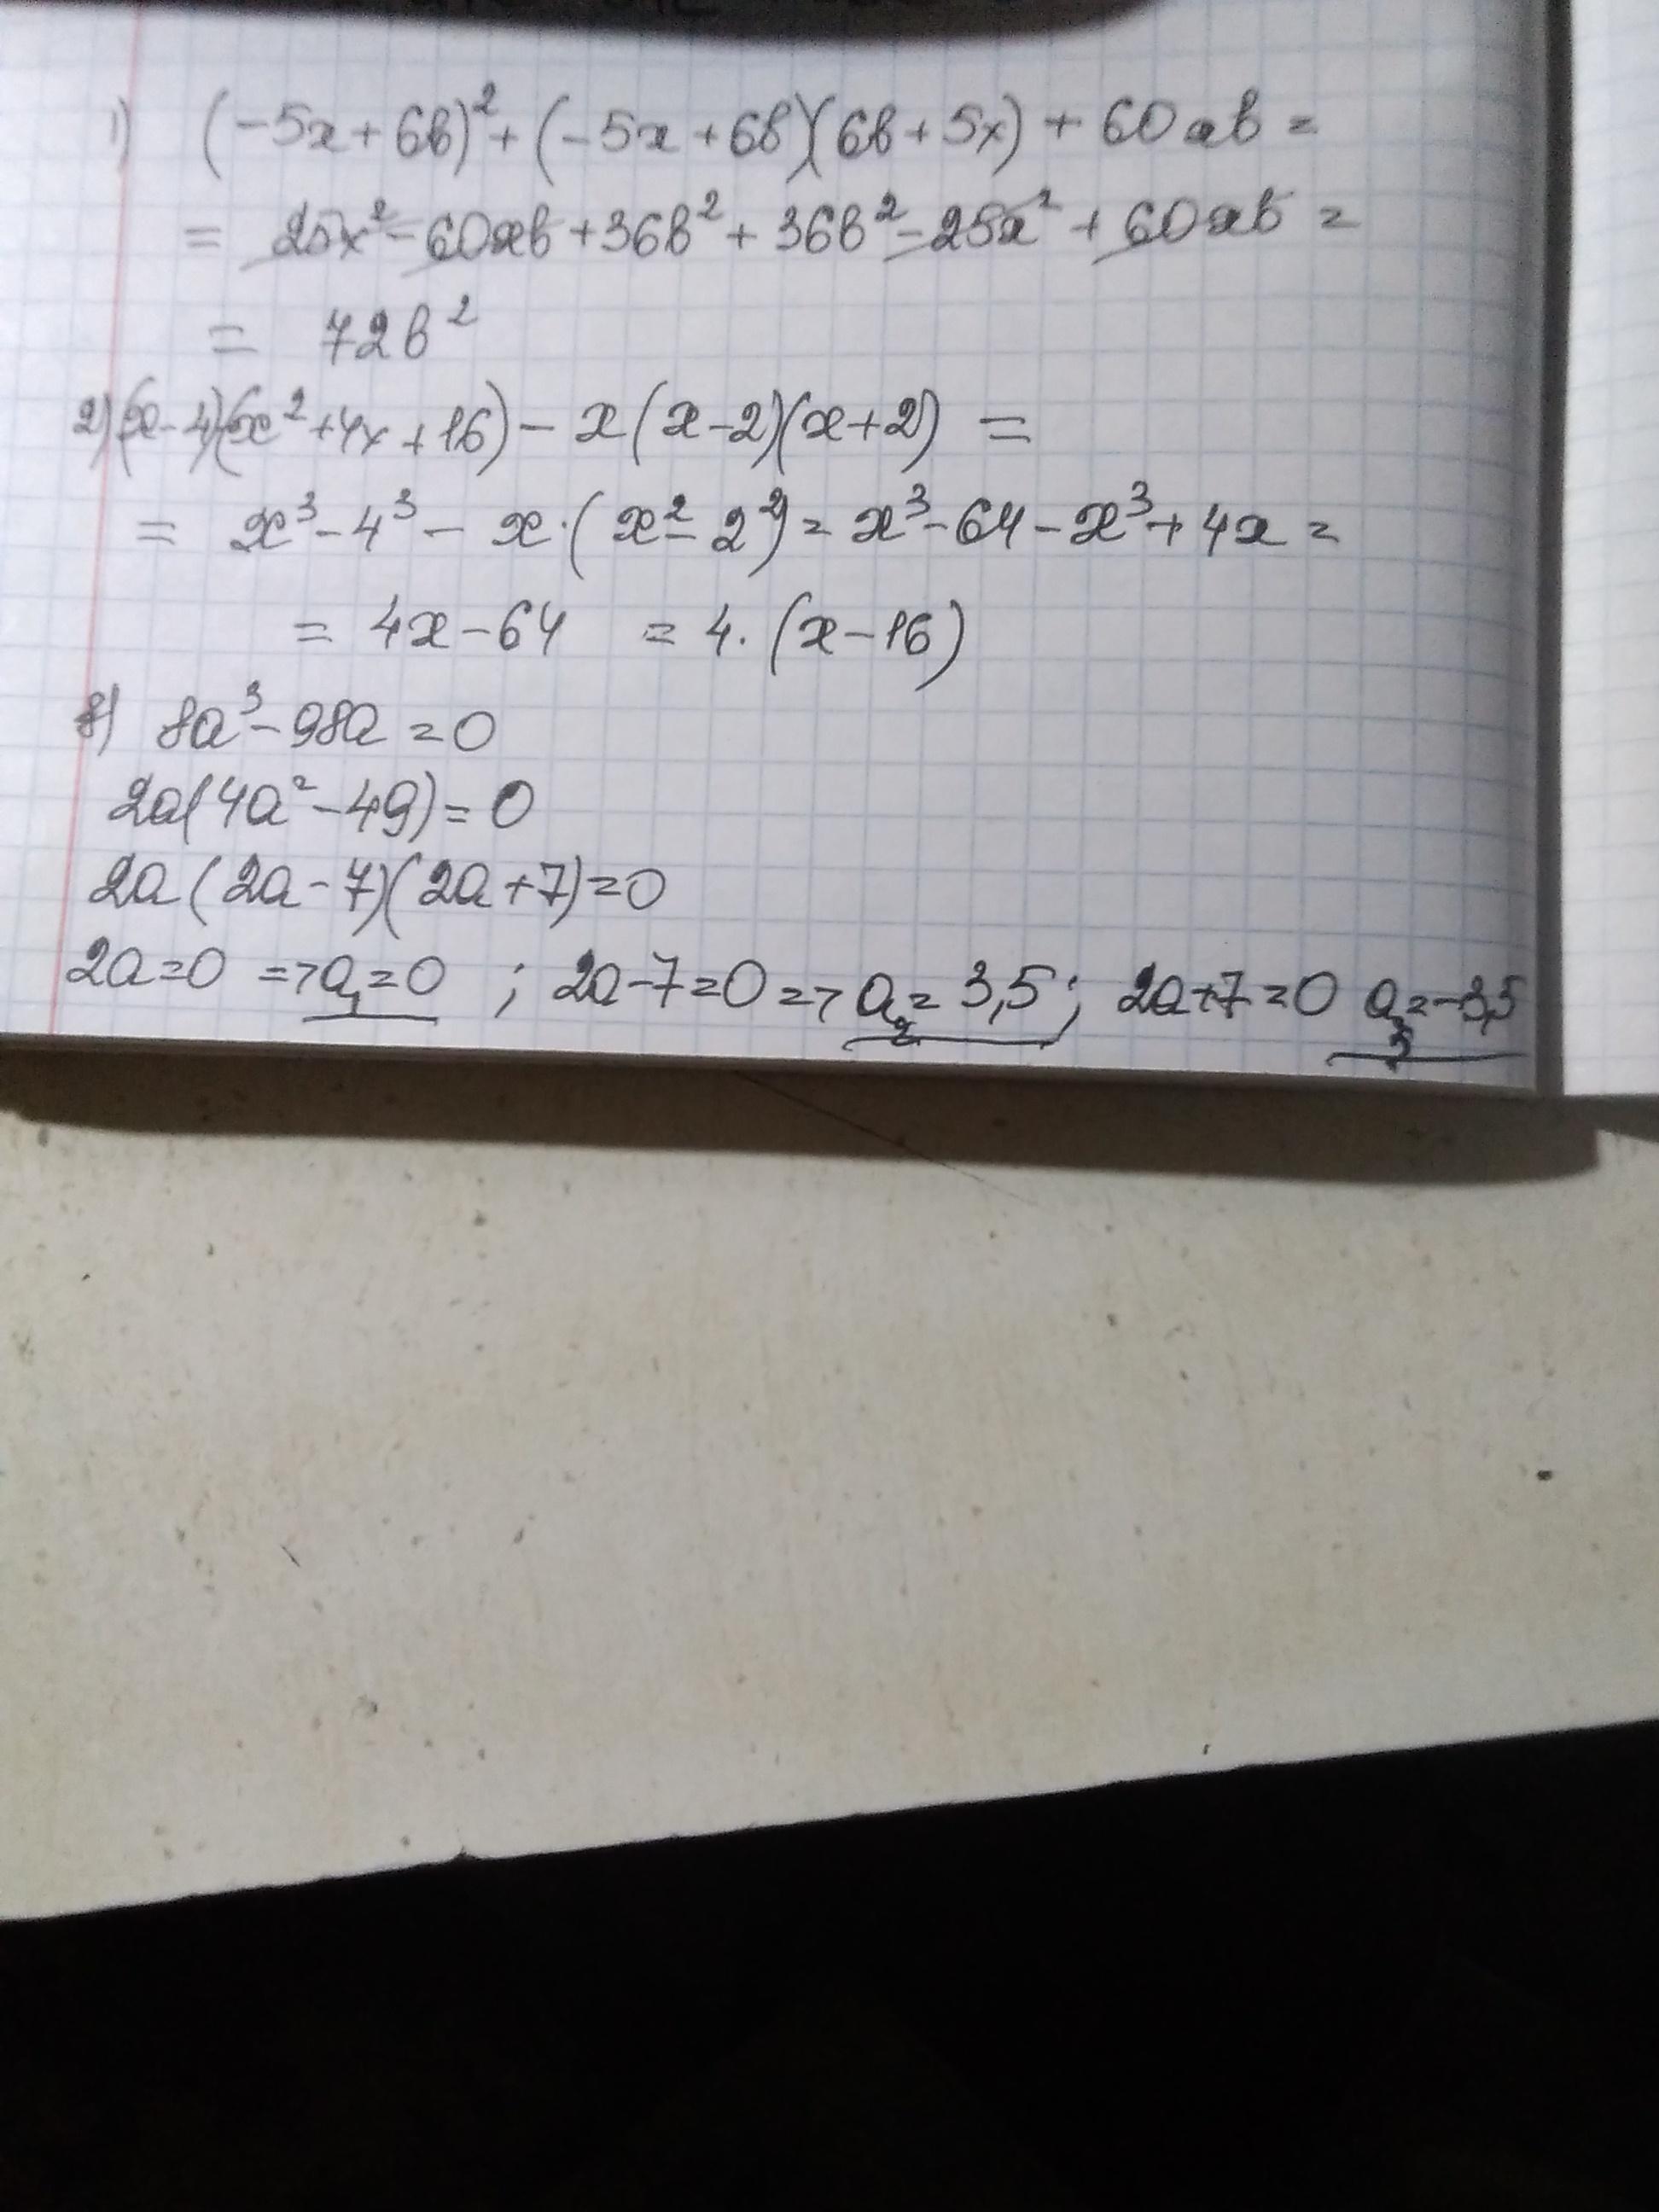 1) (-5x+6b)²+(-5x+6b)(6b+5x)+60xb=
= 25x²-60xb+36b²+36b²-25x²+60xb=
= 72b²
2)(x-4)(x²+4x+16)-x(x-2)(x+2)=
= x³-4³-x·(x²-2²)=x³-64-x³+4x=
= 4x-64 =4·(x-16)
8a³-98a=0
2a(4a²-49)=0
2a(2a-7)(2a+7)=0
2a=0 =>a₁=0 ; 2a-7=0=>a₂=3,5; 2a+7=0 a₃=-3,5